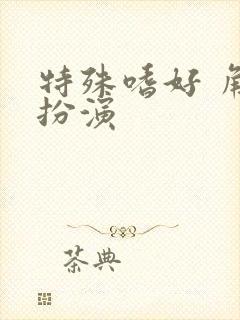 特殊嗜好 角
扮演
茶典